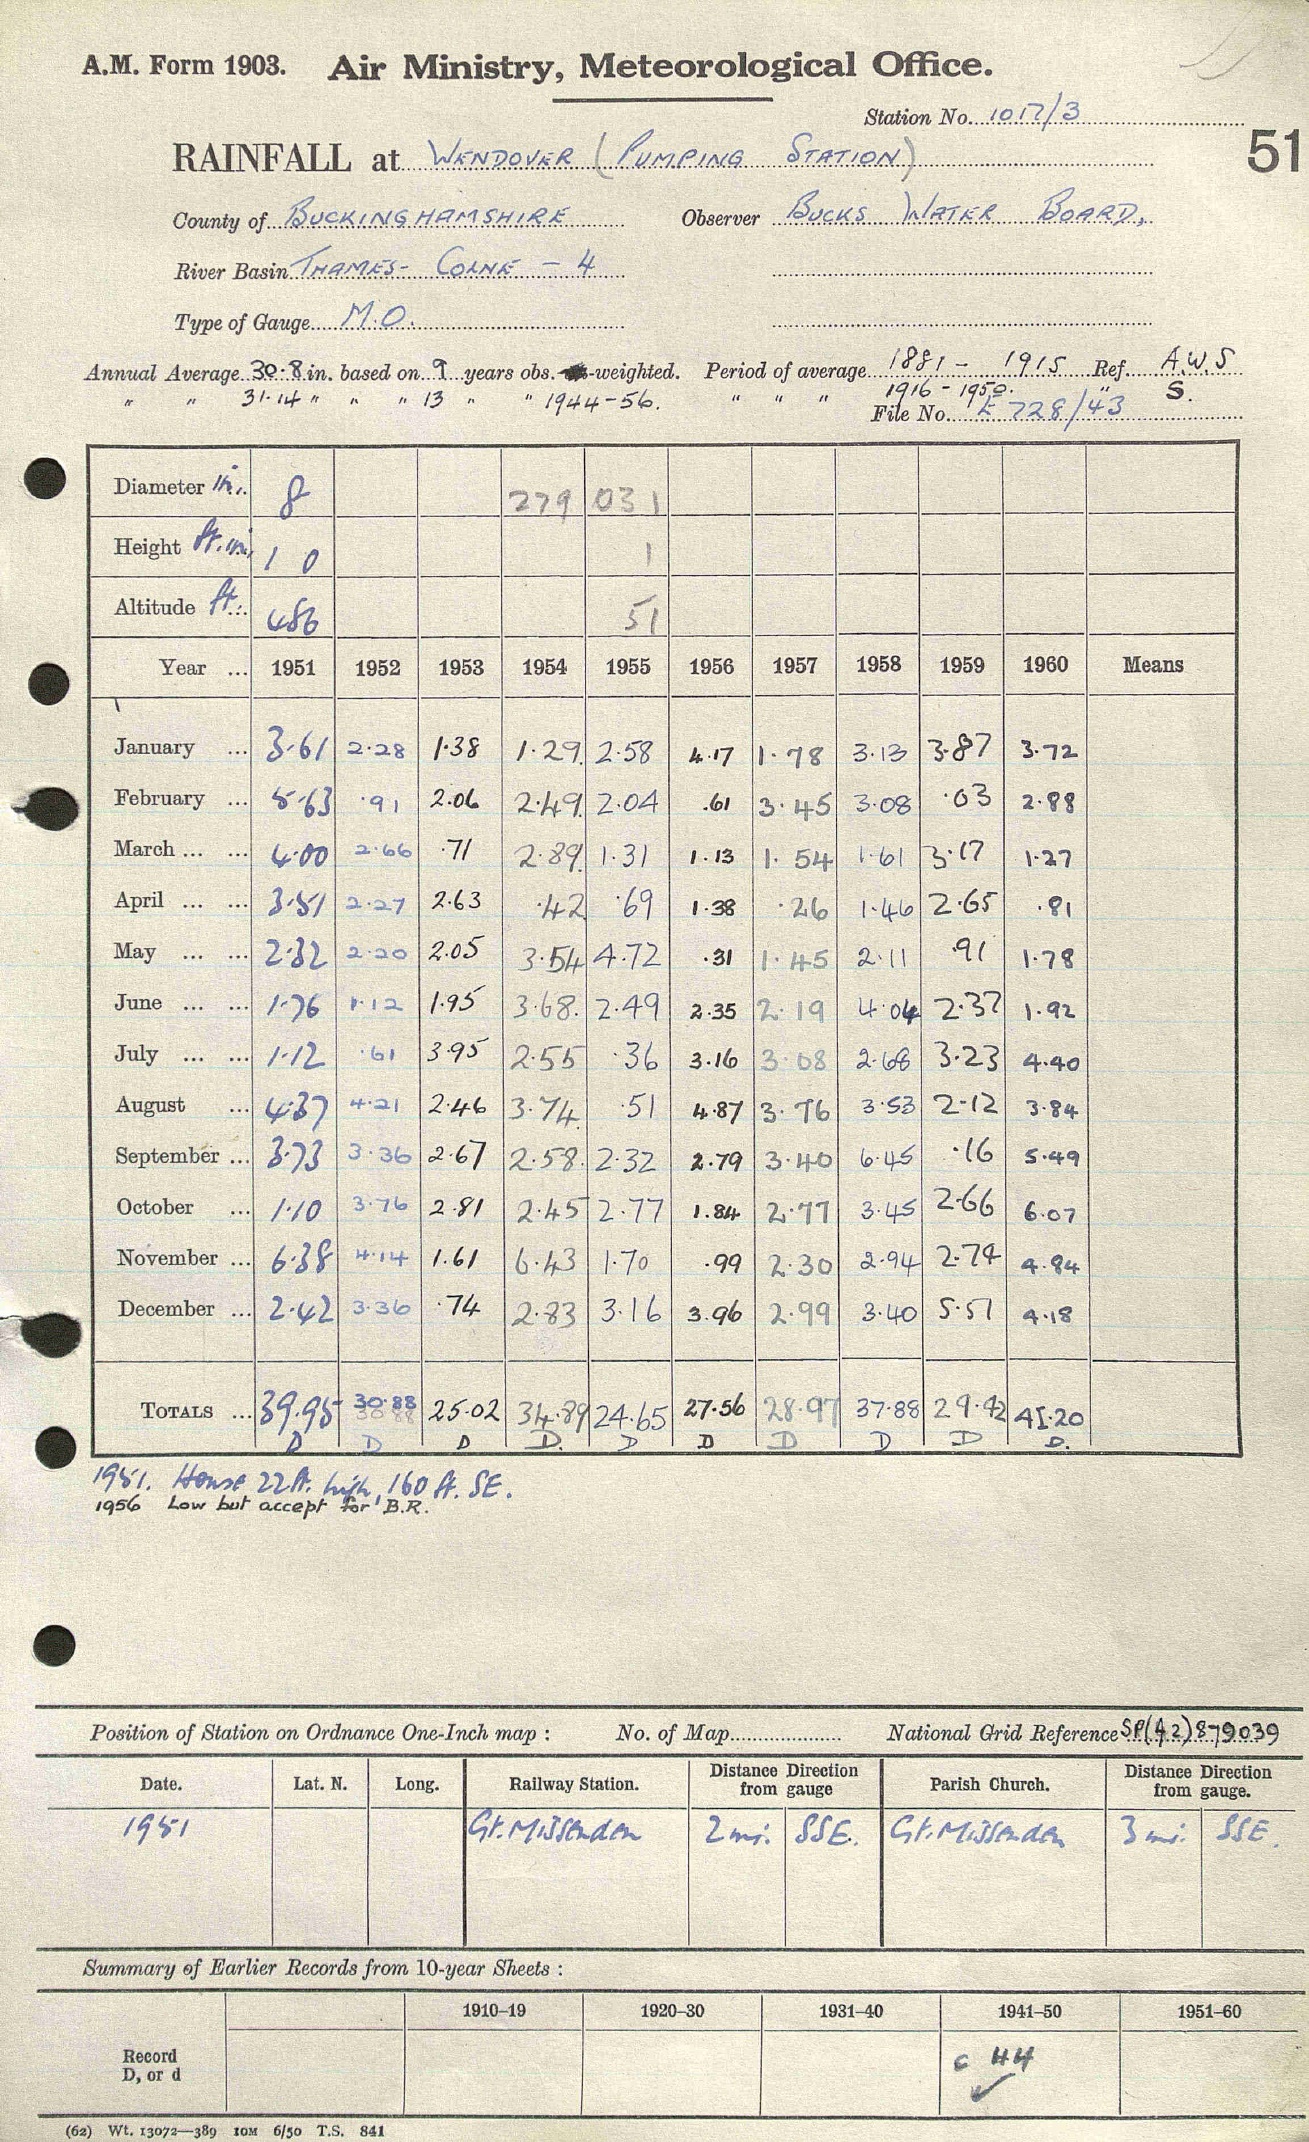 A.M. Form 1903. Air Ministry, Meteorological Office.
Station No. 1017/3
51
RAINFALL at WENDOVER (PUMPING STATION)
County of BUCKINGHAMSHIRE Observer BUCKS WATER BOARD,
River Basin THAMES - COLNE - 4
Type of Gauge M.O.
Annual Average 30.8 in. based on 9 years obs. -weighted. Period of average 1881 - 1915 Ref. A.W.S
" " 31.14 " " " 13 " " 1944-56. " " " 1916-1950. " S.
File No. 728/43
Diameter in. 8 279 031
Height ft. in. 1 0 1
Altitude ft. 486 51
Year ... 1951 1952 1953 1954 1955 1956 1957 1958 1959 1960 Means
January ... 3.61 2.28 1.38 1.29 2.58 4.17 1.78 3.13 3.87 3.72
February ... 5.63 .91 2.06 2.49 2.04 .61 3.45 3.08 .03 2.88
March ... ... 4.00 2.66 .71 2.89 1.31 1.13 1.54 1.61 3.17 1.27
April ... ... 3.51 2.27 2.63 .42 .69 1.38 .26 1.46 2.65 .81
May ... ... 2.32 2.20 2.05 3.54 4.72 .31 1.45 2.11 .91 1.78
June ... ... 1.76 1.12 1.95 3.68 2.49 2.35 2.19 4.04 2.37 1.92
July ... ... 1.12 .61 3.95 2.55 .36 3.16 3.08 2.68 3.23 4.40
August ... 4.37 4.21 2.46 3.74 .51 4.87 3.76 3.53 2.12 3.84
September ... 3.73 3.36 2.67 2.58 2.32 2.79 3.40 6.45 .16 5.49
October ... 1.10 3.76 2.81 2.45 2.77 1.84 2.77 3.45 2.66 6.07
November ... 6.38 4.14 1.61 6.43 1.70 .99 2.30 2.94 2.74 4.84
December ... 2.42 3.36 .74 2.83 3.16 3.96 2.99 3.40 5.51 4.18
TOTALS ... 39.95 30.88 25.02 34.89 24.65 27.56 28.97 37.88 29.42 41.20
30.88
D D D D. D D D D D D.
1951. House 22ft. high, 160 ft. SE.
1956 Low but accept for B.R.
Position of Station on Ordnance One-Inch map : No. of Map National Grid Reference SP(42)879039
Date. Lat. N. Long. Railway Station. Distance Direction from gauge Parish Church. Distance Direction from gauge.
1951 Gt. Missenden 2 mi. SSE. Gt. Missenden 3 mi. SSE.
Summary of Earlier Records from 10-year Sheets :
1910–19 1920–30 1931–40 1941–50 1951–60
Record
D, or d
c 44
✓
(62) Wt. 13072—389 10M 6/50 T.S. 841